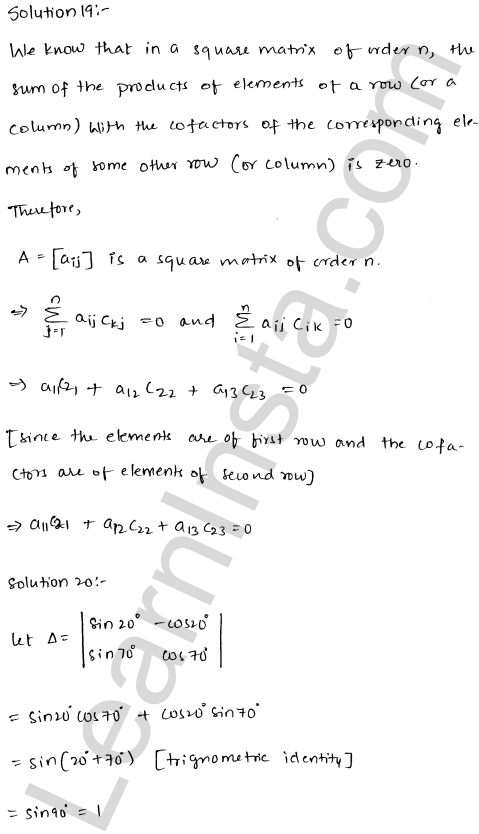 Solution 19:-
We know that in a square matrix of order n, the
sum of the products of elements of a row (or a
column) with the cofactors of the corresponding ele-
ments of some other row (or column) is zero.
Therefore,
A = [aij] is a square matrix of order n.
⇒ ∑ⁿj=1 aij Ckj = 0 and ∑ⁿi=1 aij Cik = 0
⇒ a11C21 + a12 C22 + a13 C23 = 0
[since the elements are of first row and the cofa-
ctors are of elements of second row]
⇒ a11C21 + a12 C22 + a13 C23 = 0
Solution 20:-
Let Δ = | sin 20° -cos20° |
| sin 70° cos 70° |
= sin20° cos 70° + cos20° sin 70°
= sin(20°+70°) [trignometric identity]
= sin90° = 1
LearnInsta.com